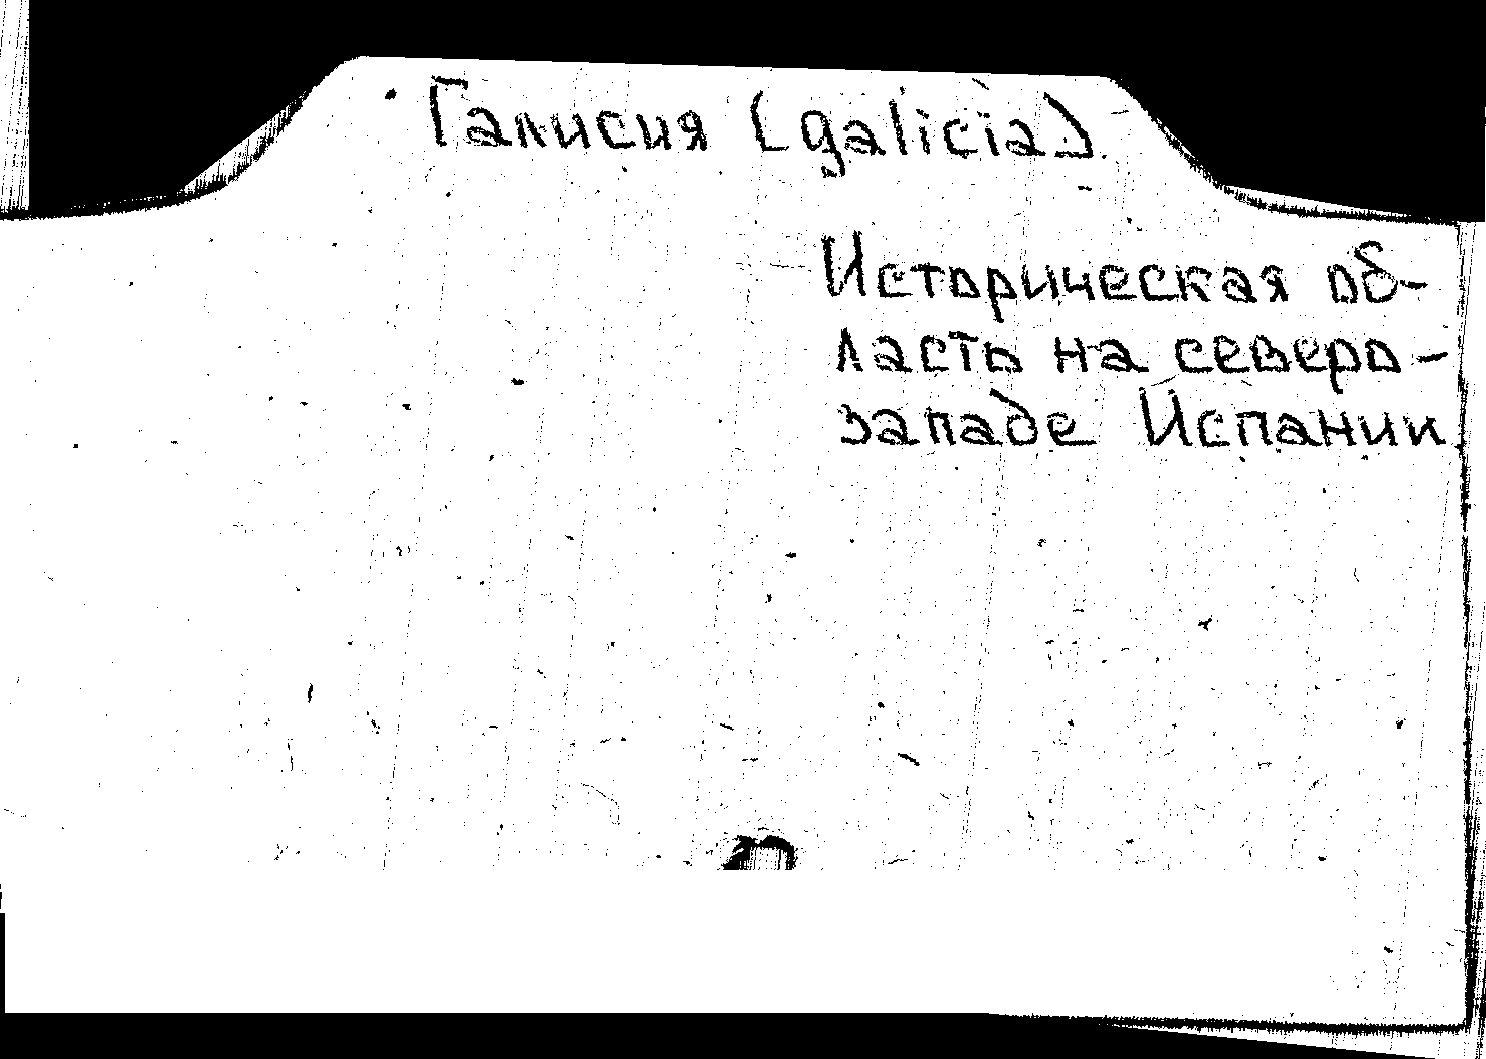 Галисия (galicia)
Историческая об-
ласть на северо-
западе Испании